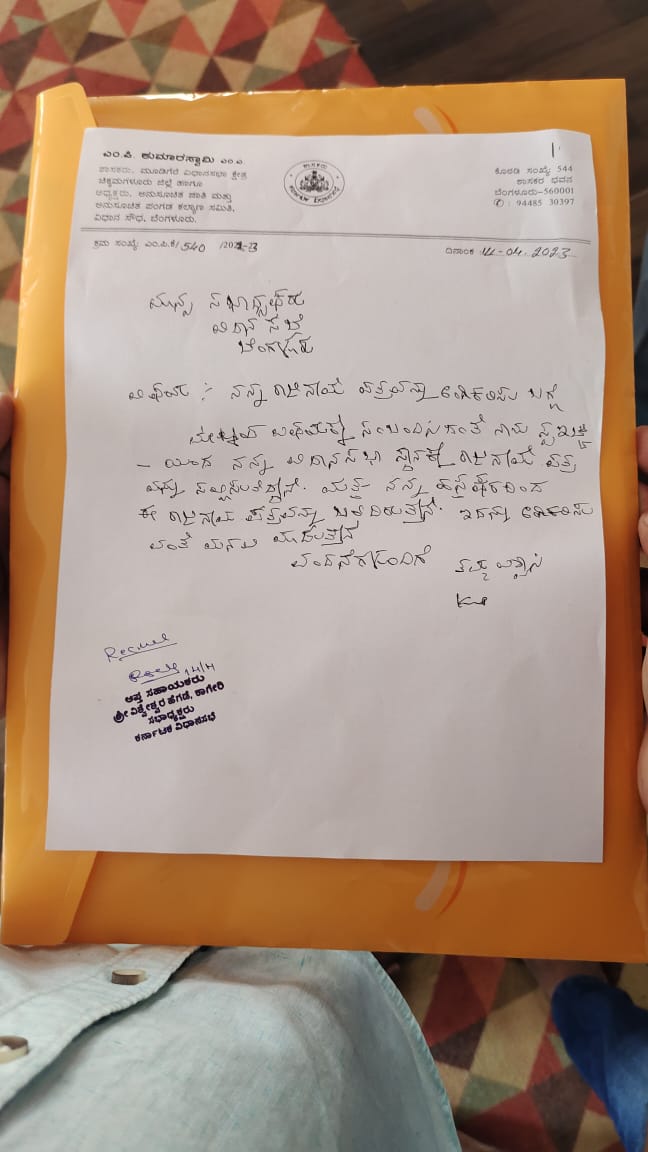 ಎಂ.ಪಿ. ಕುಮಾರಸ್ವಾಮಿ ಎಂ.ಎ.
ಶಾಸಕರು, ಮೂಡಿಗೆರೆ ವಿಧಾನಸಭಾ ಕ್ಷೇತ್ರ
ಚಿಕ್ಕಮಗಳೂರು ಜಿಲ್ಲೆ ಹಾಗೂ
ಅಧ್ಯಕ್ಷರು, ಅನುಸೂಚಿತ ಜಾತಿ ಮತ್ತು
ಅನುಸೂಚಿತ ಪಂಗಡ ಕಲ್ಯಾಣ ಸಮಿತಿ,
ವಿಧಾನ ಸೌಧ, ಬೆಂಗಳೂರು.
ಶಾಸಕರು
ಕೊಠಡಿ ಸಂಖ್ಯೆ 544
ಶಾಸಕರ ಭವನ
ಬೆಂಗಳೂರು-560001
✆ : 94485 30397
ಕ್ರಮ ಸಂಖ್ಯೆ ಎಂ.ಪಿ.ಕೆ/540 /2022-23
ದಿನಾಂಕ 14-04-2023
ಮಾನ್ಯ ಸಭಾಧ್ಯಕ್ಷರು
ವಿಧಾನ ಸಭೆ
ಬೆಂಗಳೂರು
ವಿಷಯ :- ನನ್ನ ರಾಜಿನಾಮೆ ಪತ್ರವನ್ನು ಅಂಗಿಕರಿಸುವ ಬಗ್ಗೆ
ಮೇಲ್ಕಂಡ ವಿಷಯಕ್ಕೆ ಸಂಬಂದಿಸಿದಂತೆ ನಾನು ಸ್ವಇಚ್ಛೆ
- ಯಿಂದ ನನ್ನ ವಿಧಾನಸಭಾ ಸ್ಥಾನಕ್ಕೆ ರಾಜಿನಾಮೆ ಪತ್ರ
ವನ್ನು ಸಲ್ಲಿಸುತ್ತಿದ್ದೇನೆ. ಮತ್ತು ನನ್ನ ಹಸ್ತಾಕ್ಷರದಿಂದ
ಈ ರಾಜಿನಾಮೆ ಪತ್ರವನ್ನು ಬರೆದಿರುತ್ತೇನೆ. ಇದನ್ನು ಅಂಗಿಕರಿಸು
ವಂತೆ ಮನವಿ ಮಾಡುತ್ತೇನೆ
ವಂದನೆಗಳೊಂದಿಗೆ ತಮ್ಮ ವಿಶ್ವಾಸಿ
14/4
ಆಪ್ತ ಸಹಾಯಕರು
ಶ್ರೀ ವಿಶ್ವೇಶ್ವರ ಹೆಗಡೆ, ಕಾಗೇರಿ
ಸಭಾಧ್ಯಕ್ಷರು
ಕರ್ನಾಟಕ ವಿಧಾನಸಭೆ